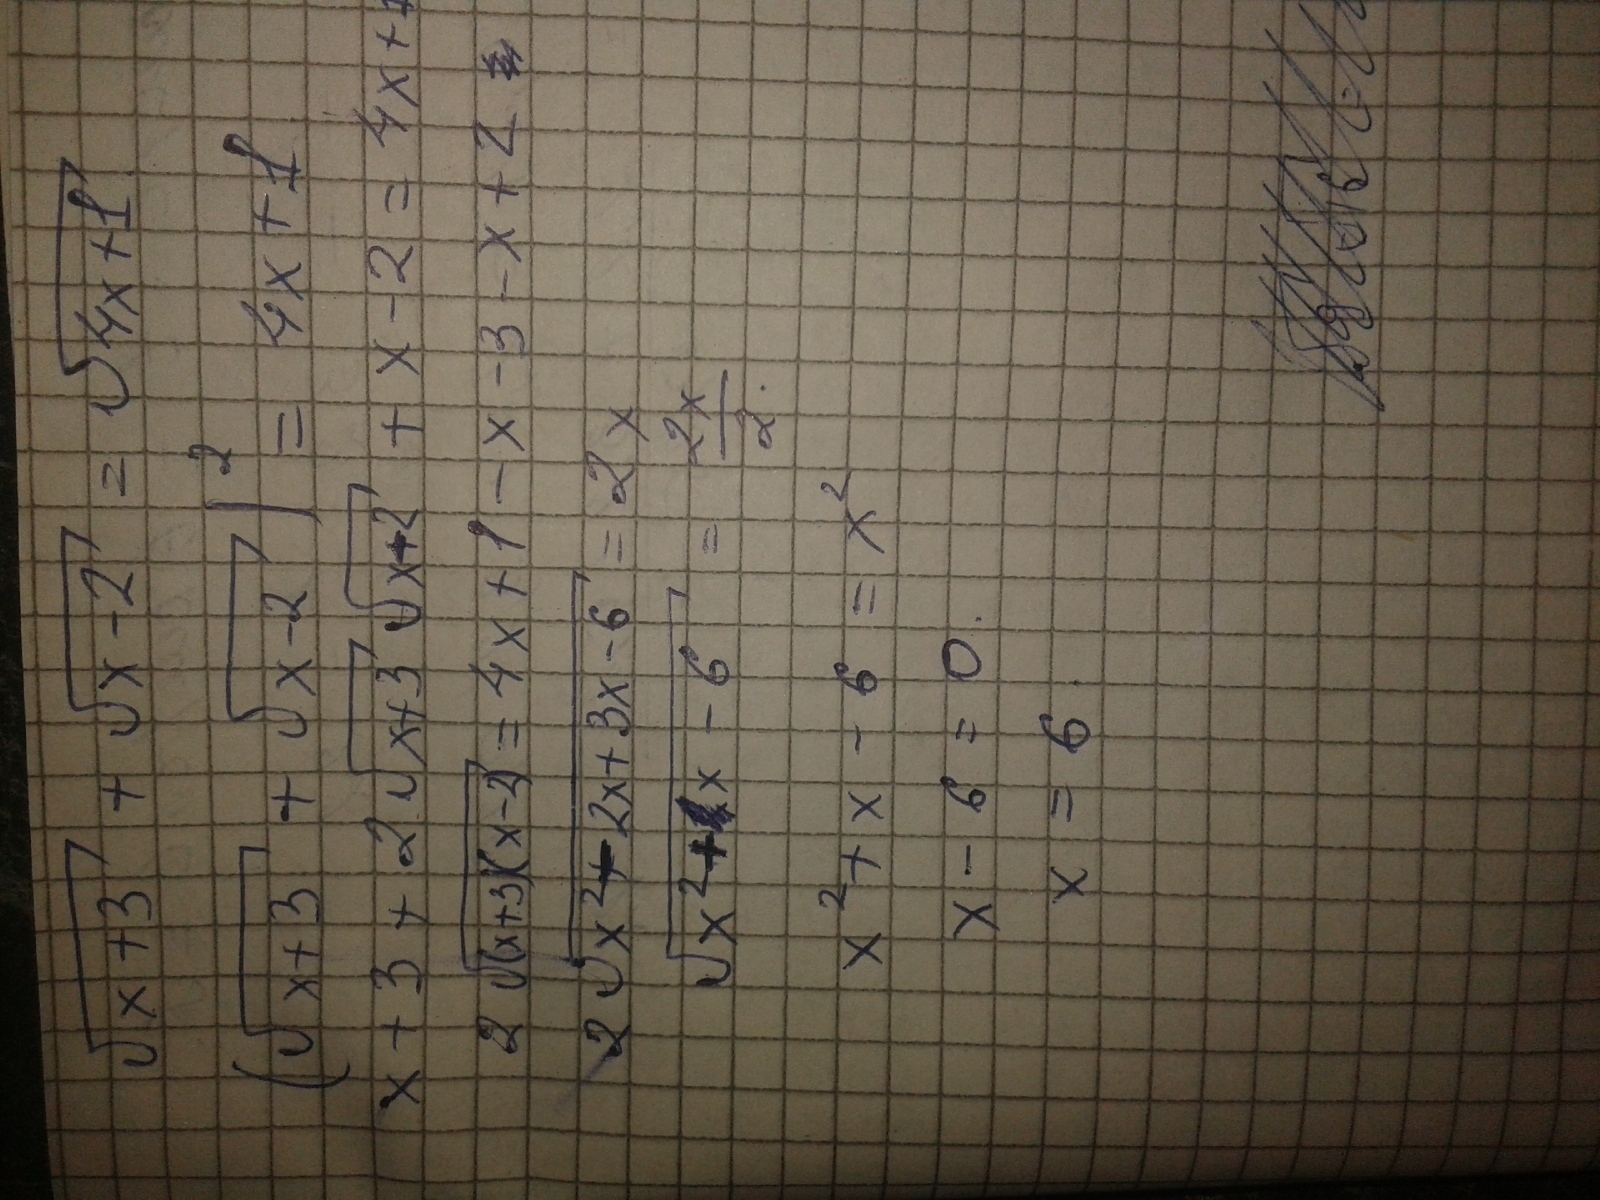 √(x+3) + √(x-2) = √(4x+1)
(√(x+3) + √(x-2))² = 4x+1
x + 3 + 2√(x+3) √(x+2) + x - 2 = 4x+1
2√((x+3)(x-2)) = 4x + 1 - x - 3 - x + 2
2√(x²-2x+3x-6) = 2x
√(x²+x-6) = 2x/2.
x² + x - 6 = x²
x - 6 = 0.
x = 6.